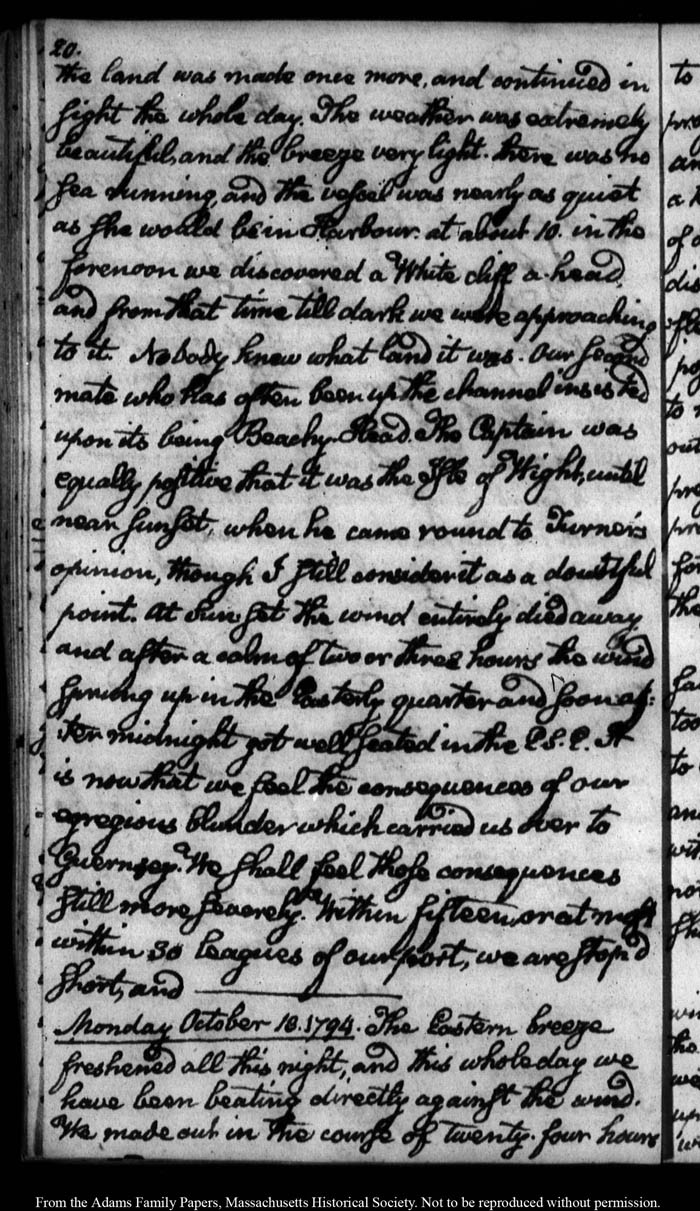 20.
the land was made once more, and continued in
sight the whole day. The weather was extremely
beautiful, and the breeze very light. there was no
sea running, and the vessel was nearly as quiet
as she would be in Harbour. at about 10. in the
forenoon we discovered a White cliff a-head,
and from that time till dark we were approaching
to it. Nobody knew what land it was. Our second
mate who has often been up the channel insisted
upon its being Beachy-Head. The Captain was
equally positive that it was the Isle of Wight, until
near sunset, when he came round to Turner's
opinion, though I still consider it as a doubtful
point. At Sun set the wind entirely died away
and after a calm of two or three hours the wind
sprung up in the Easterly quarter and soon af:
ter midnight got well seated in the E.S.E. It
is now that we feel the consequences of our
egregious blunder which carried us over to
Guernsey. We shall feel those consequences
still more severely. Within fifteen, or at most
within 30 leagues of our port, we are stop'd
short, and
Monday October 13. 1794. The Eastern breeze
freshened all this night, and this whole day we
have been beating directly against the wind.
We made out in the course of twenty-four hours
to
an
of
dis
to
out
for
the
too
to
and
not
the
we
From the Adams Family Papers, Massachusetts Historical Society. Not to be reproduced without permission.